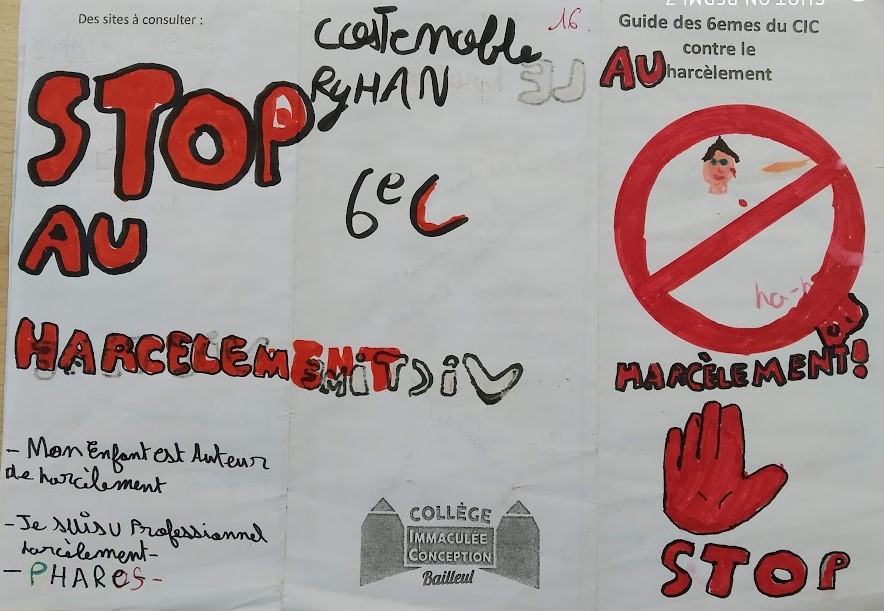 Des sites à consulter :
STOP
AU
HARCELEMENT
- Mon Enfant est Auteur
de harcèlement
- Je suis u Professionnel
harcèlement -
- PHAROS -
RyHAN
16
6e C
COLLÈGE
IMMACULÉE
CONCEPTION
Bailleul
Guide des 6emes du CIC
contre le
harcèlement
AU
HARCÈLEMENT!
STOP